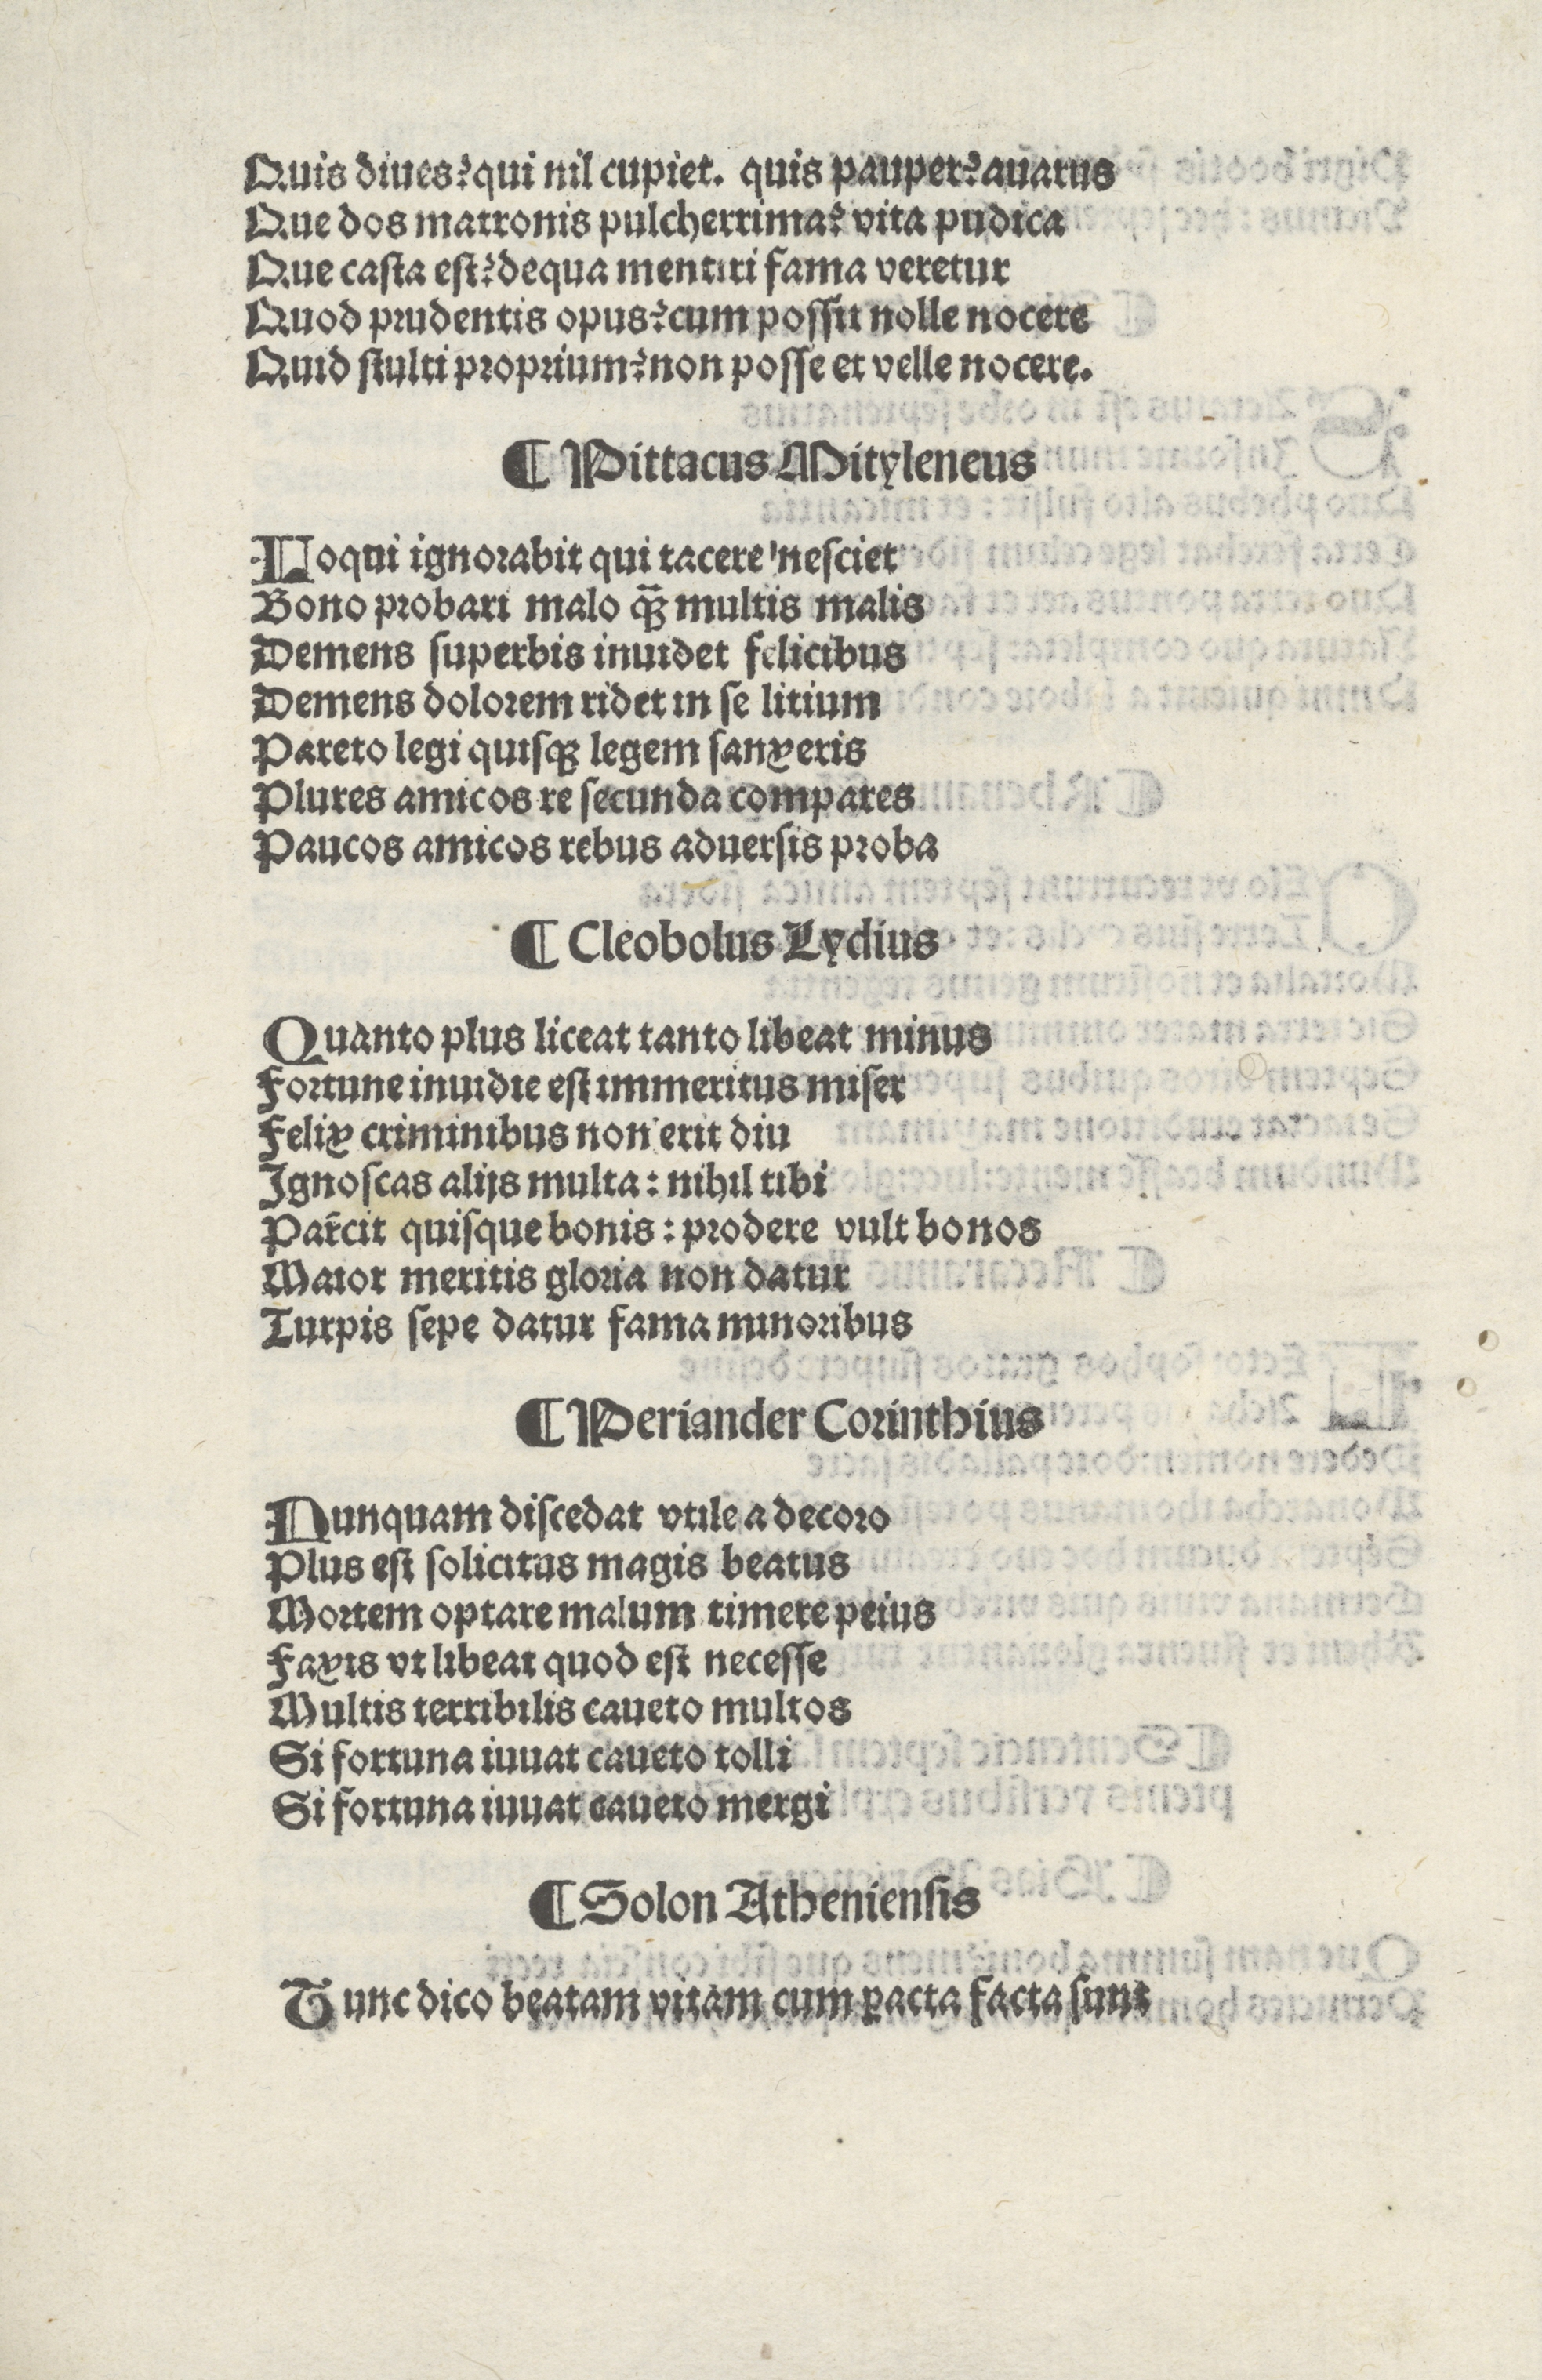 Quis diues? qui nil cupiet. quis pauper? auarus
Que dos matronis pulcherrima? vita pudica
Que casta est? dequa mentiri fama veretur
Quod prudentis opus? cum possit nolle nocere
Quid stulti proprium? non posse et velle nocere.
¶ Pittacus Mityleneus
Loqui ignorabit qui tacere nesciet
Bono probari malo qꝫ̃ multis malis
Demens superbis inuidet felicibus
Demens dolorem ridet in se litium
Pareto legi quisqꝫ legem sanxeris
Plures amicos re secunda compares
Paucos amicos rebus aduersis proba
¶ Cleobolus Lydius
Quanto plus liceat tanto libeat minus
Fortune inuidie est immeritus miser
Felix criminibus non erit diu
Ignoscas alijs multa: nihil tibi
Par̃cit quisque bonis: prodere vult bonos
Maior meritis gloria non datur
Turpis sepe datur fama minoribus
¶ Periander Corinthius
Nunquam discedat vtile a decoro
Plus est solicitus magis beatus
Mortem optare malum timere peius
Faxis vt libeat quod est necesse
Multis terribilis caueto multos
Si fortuna iuuat caueto tolli
Si fortuna iuuat caueto mergi
¶ Solon Atheniensis
Tunc dico beatam vitam cum ꝑacta facta sunt